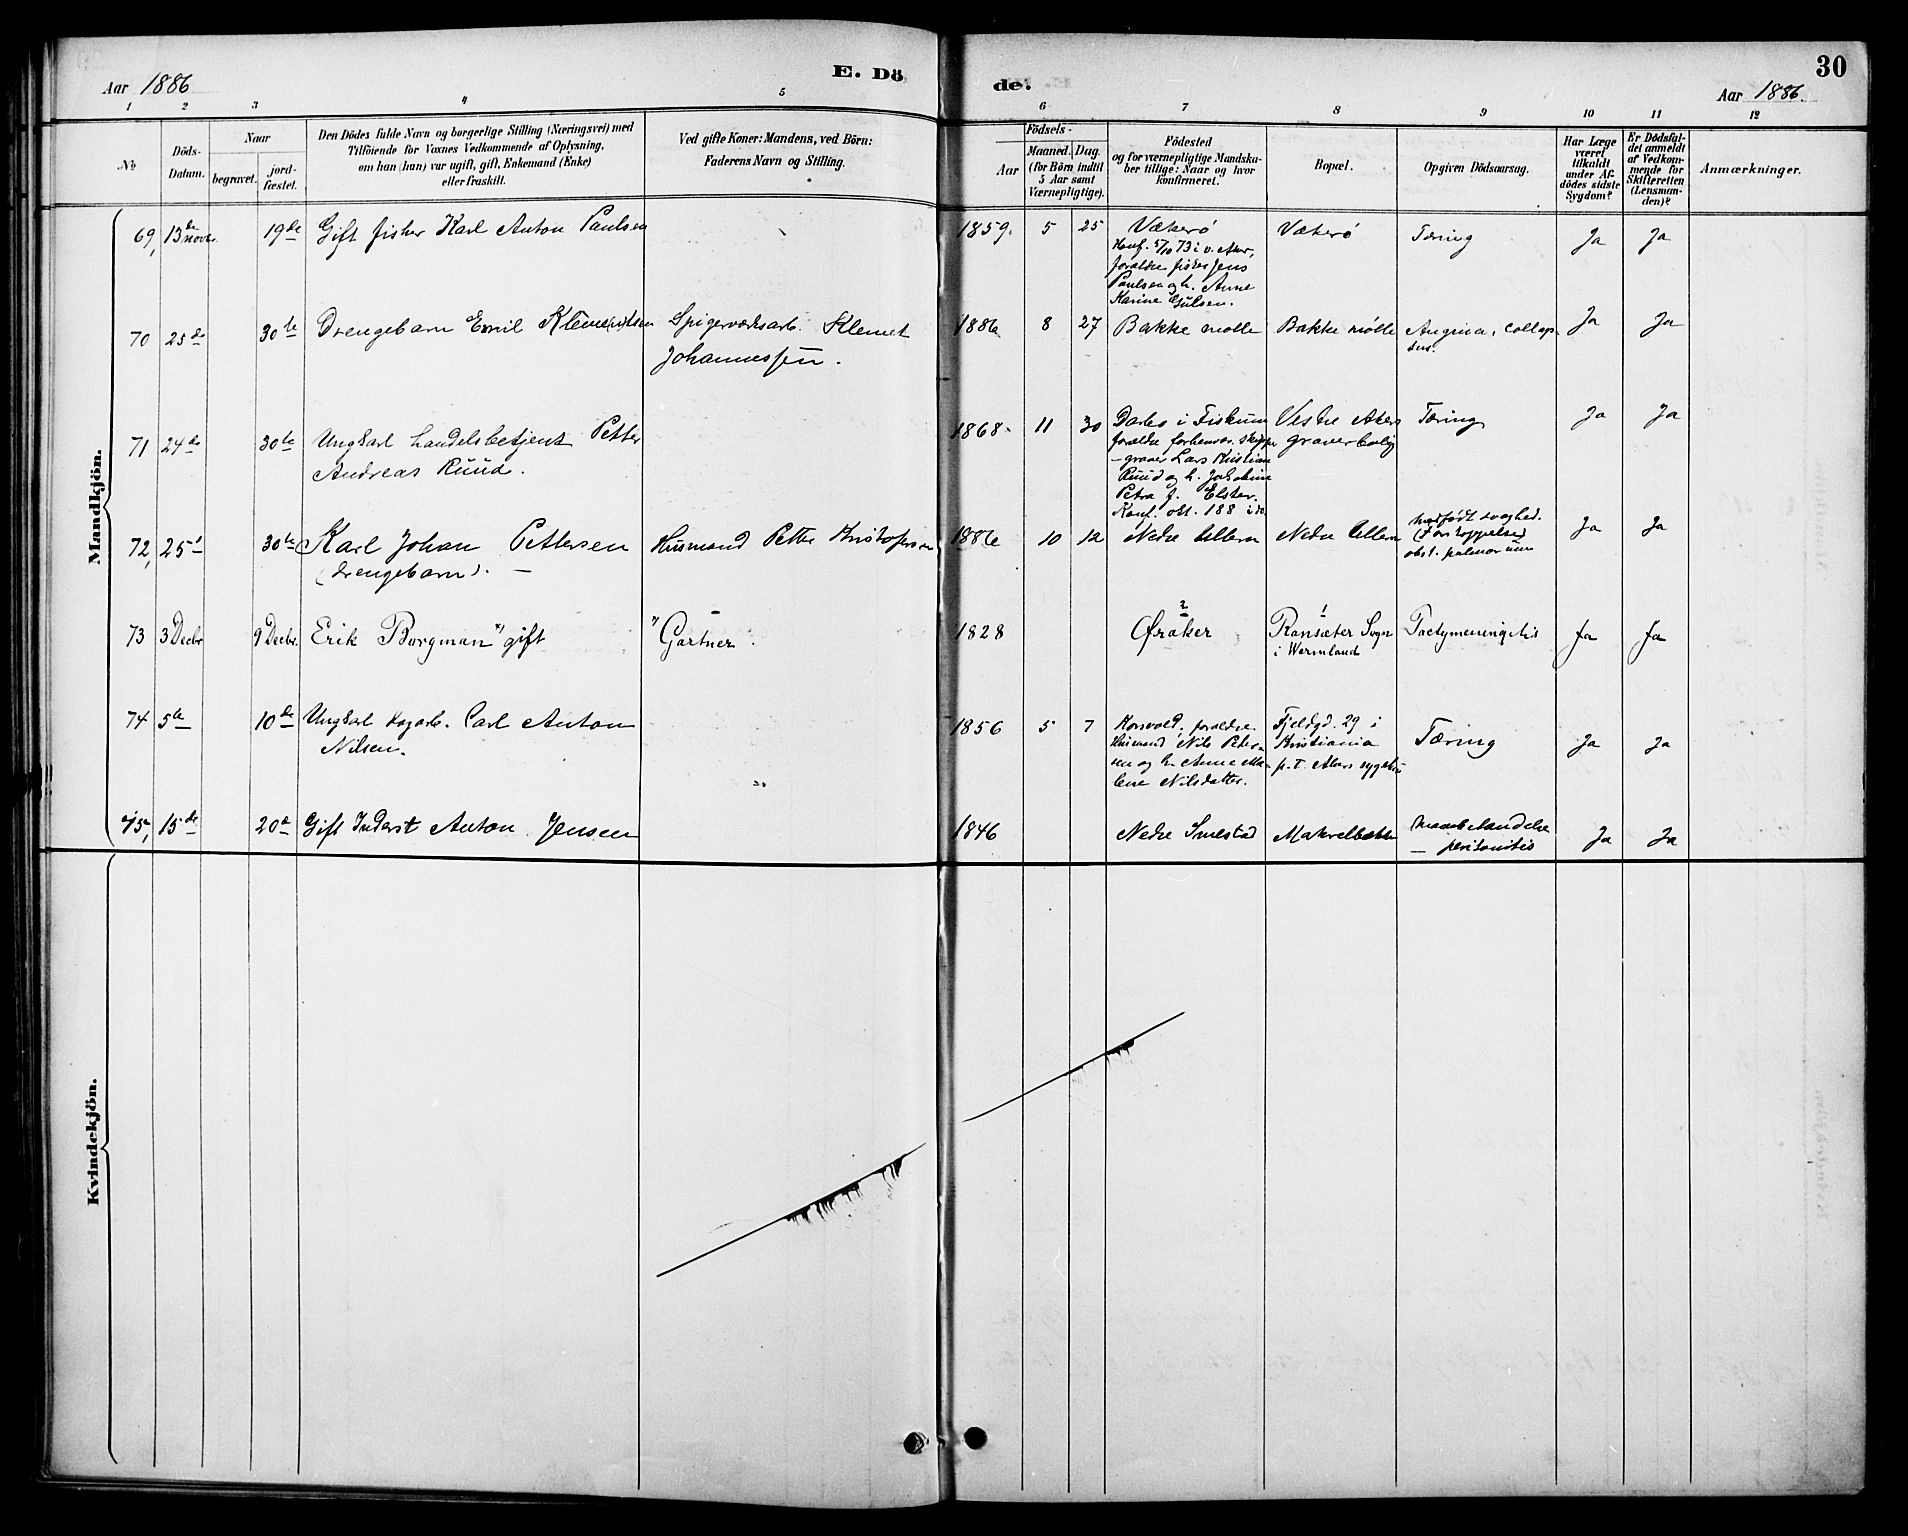 Aar 1886
E. Dö
de.
30
Aar 1886.
1 2 3 4 5 6 7 8 9 10 11 12
No.
Döds-
Datum.
Naar
begravet.
jord-
fæstet.
Den Dödes fulde Navn og borgerlige Stilling (Næringsvei) med
Tilföiende for Voxnes Vedkommende af Oplysning,
om han (hun) var ugift, gift, Enkemand (Enke)
eller fraskilt.
Ved gifte Koner: Mandens, ved Börn:
Faderens Navn og Stilling.
Födsels-
Aar
Maaned. Dag.
(for Börn indtil
5 Aar samt
Værnepligtige).
Födested
og for værnepligtige Mandska-
ber tillige: Naar og hvor
konfirmeret.
Bopæl.
Opgiven Dödsaarsag.
Har Læge
været
tilkaldt
under Af-
dödes sidste
Sygdom?
Er Dödsfal-
det anmeldt
af Vedkom-
mende for
Skifteretten
(Lensman-
den)?
Anmærkninger.
Mandkjön.
69, 13de novbr. 19de Gift fisker Karl Anton Paulsen 1859. 5 25 Vækerø Vækerø Tæring Ja Ja
Konf. 5/10 73 i v. Aker,
forældre fisker Jens
Paulsen og h. Anne
Karine
70 25de 30te Drengebarn Emil Klemetsen Spigerværksarb. Klemet 1886 8 27 Bakke mølle Bakke mølle Angina, collap- Ja Ja
sus.
Johannessen.
71 24de 30te Ungkarl handelsbetjent Petter 1868. 11 30 Darbo i Fiskum Vestre Akers Tæring Ja Ja
Andreas Ruud.
forældre forhenvær.
graverbolig
graver Lars Kristian
Ruud og h.
Petra f. Elster.
Konf. okt. 188
72, 25 30te Karl Johan Pettersen Husmand Petter Kristofersen 1886 10 12 Nedre Ullern Nedre Ullern medfödt svaghed. Ja Ja
(drengebarn).
obst. pulmonum
73 3 Decbr 9 Decbr. Erik Borgman gift " Gartner 1828 2 Øraker 1 Ransæter Sogn Ja Ja
i Wermland
74 5te 10de Ungkarl Carl Anton 1856 5 7 forældre Fjeldgd. 29 i Tæring Ja Ja
Nilsen.
Husmand Nils Peter- Kristiania
sen og h. Anne Ma- p.t. Akers sygehus
lene Nilsdatter.
75, 15de 20de Gift Inderst Anton Jensen 1846 Nedre Smestad Makrelbækken Ja Ja
peritonitis
Kvindekjön.